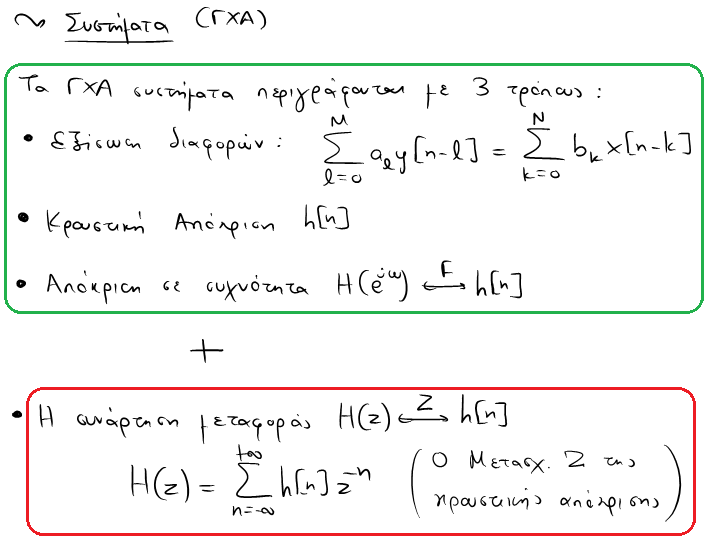 ~ Συστήματα (ΓΧΑ)
Τα ΓΧΑ συστήματα περιγράφονται με 3 τρόπους :
• Εξίσωση διαφορών : \sum_{l=0}^{M} a_l y[n-l] = \sum_{k=0}^{N} b_k x[n-k]
• Κρουστική Απόκριση h[n]
• Απόκριση σε συχνότητα H(e^{jω}) \xleftrightarrow{F} h[n]
+
• Η συνάρτηση μεταφοράς H(z) \xleftrightarrow{Z} h[n]
H(z) = \sum_{n=-∞}^{+∞} h[n] z^{-n} (Ο Μετασχ. Z της
κρουστικής απόκρισης)